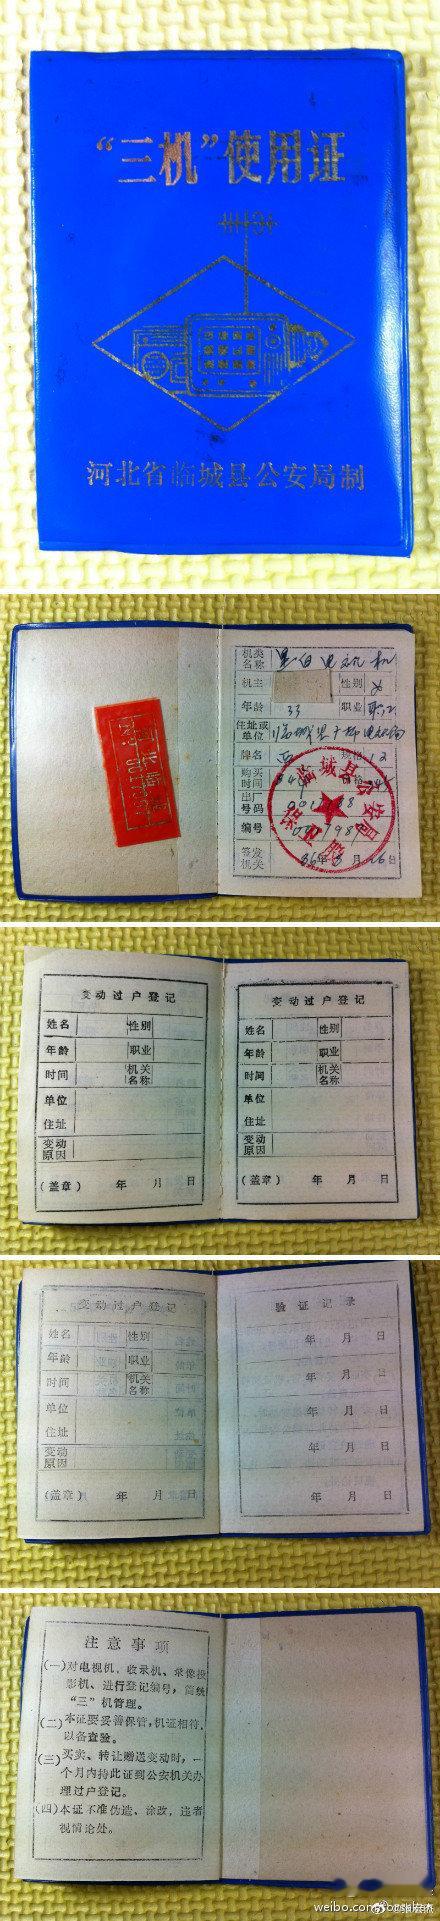 “三机”使用证
河北省临城县公安局制
机类名称 黑白电视机
机主 性别 女
年龄 33 职业 职工
住址或单位
牌名 规格 12
购买时间 价格
出厂号码
编号
签发机关 86年8月26日
临城县公安局
变动过户登记
姓名 性别
年龄 职业
时间 机关名称
单位
住址
变动原因
(盖章) 年 月 日
变动过户登记
姓名 性别
年龄 职业
时间 机关名称
单位
住址
变动原因
(盖章) 年 月 日
变动过户登记
姓名 性别
年龄 职业
时间 机关名称
单位
住址
变动原因
(盖章) 年 月 日
验证记录
年 月 日
年 月 日
年 月 日
年 月 日
年 月 日
注意事项
(一)对电视机、收录机、录像投
影机、进行登记编号,简统
“三”机管理。
(二)本证要妥善保管,机证相符,
以备查验。
(三)买卖、转让赠送变动时,一
个月内持此证到公安机关办
理过户登记。
(四)本证不准伪造、涂改,违者
视情论处。